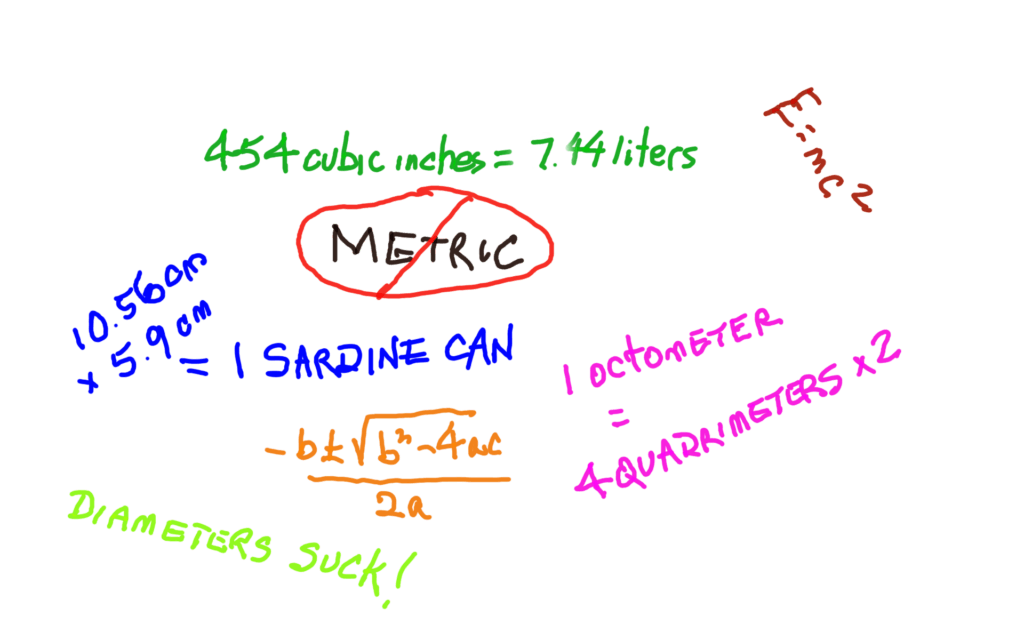 454 cubic inches = 7.44 liters
E=mc2
METRIC
10.56 cm
x 5.9 cm
= 1 SARDINE CAN
1 octoMETER
=
4 QUADRIMETERS x2
-b±√b²-4ac
2a
DIAMETERS SUCK!